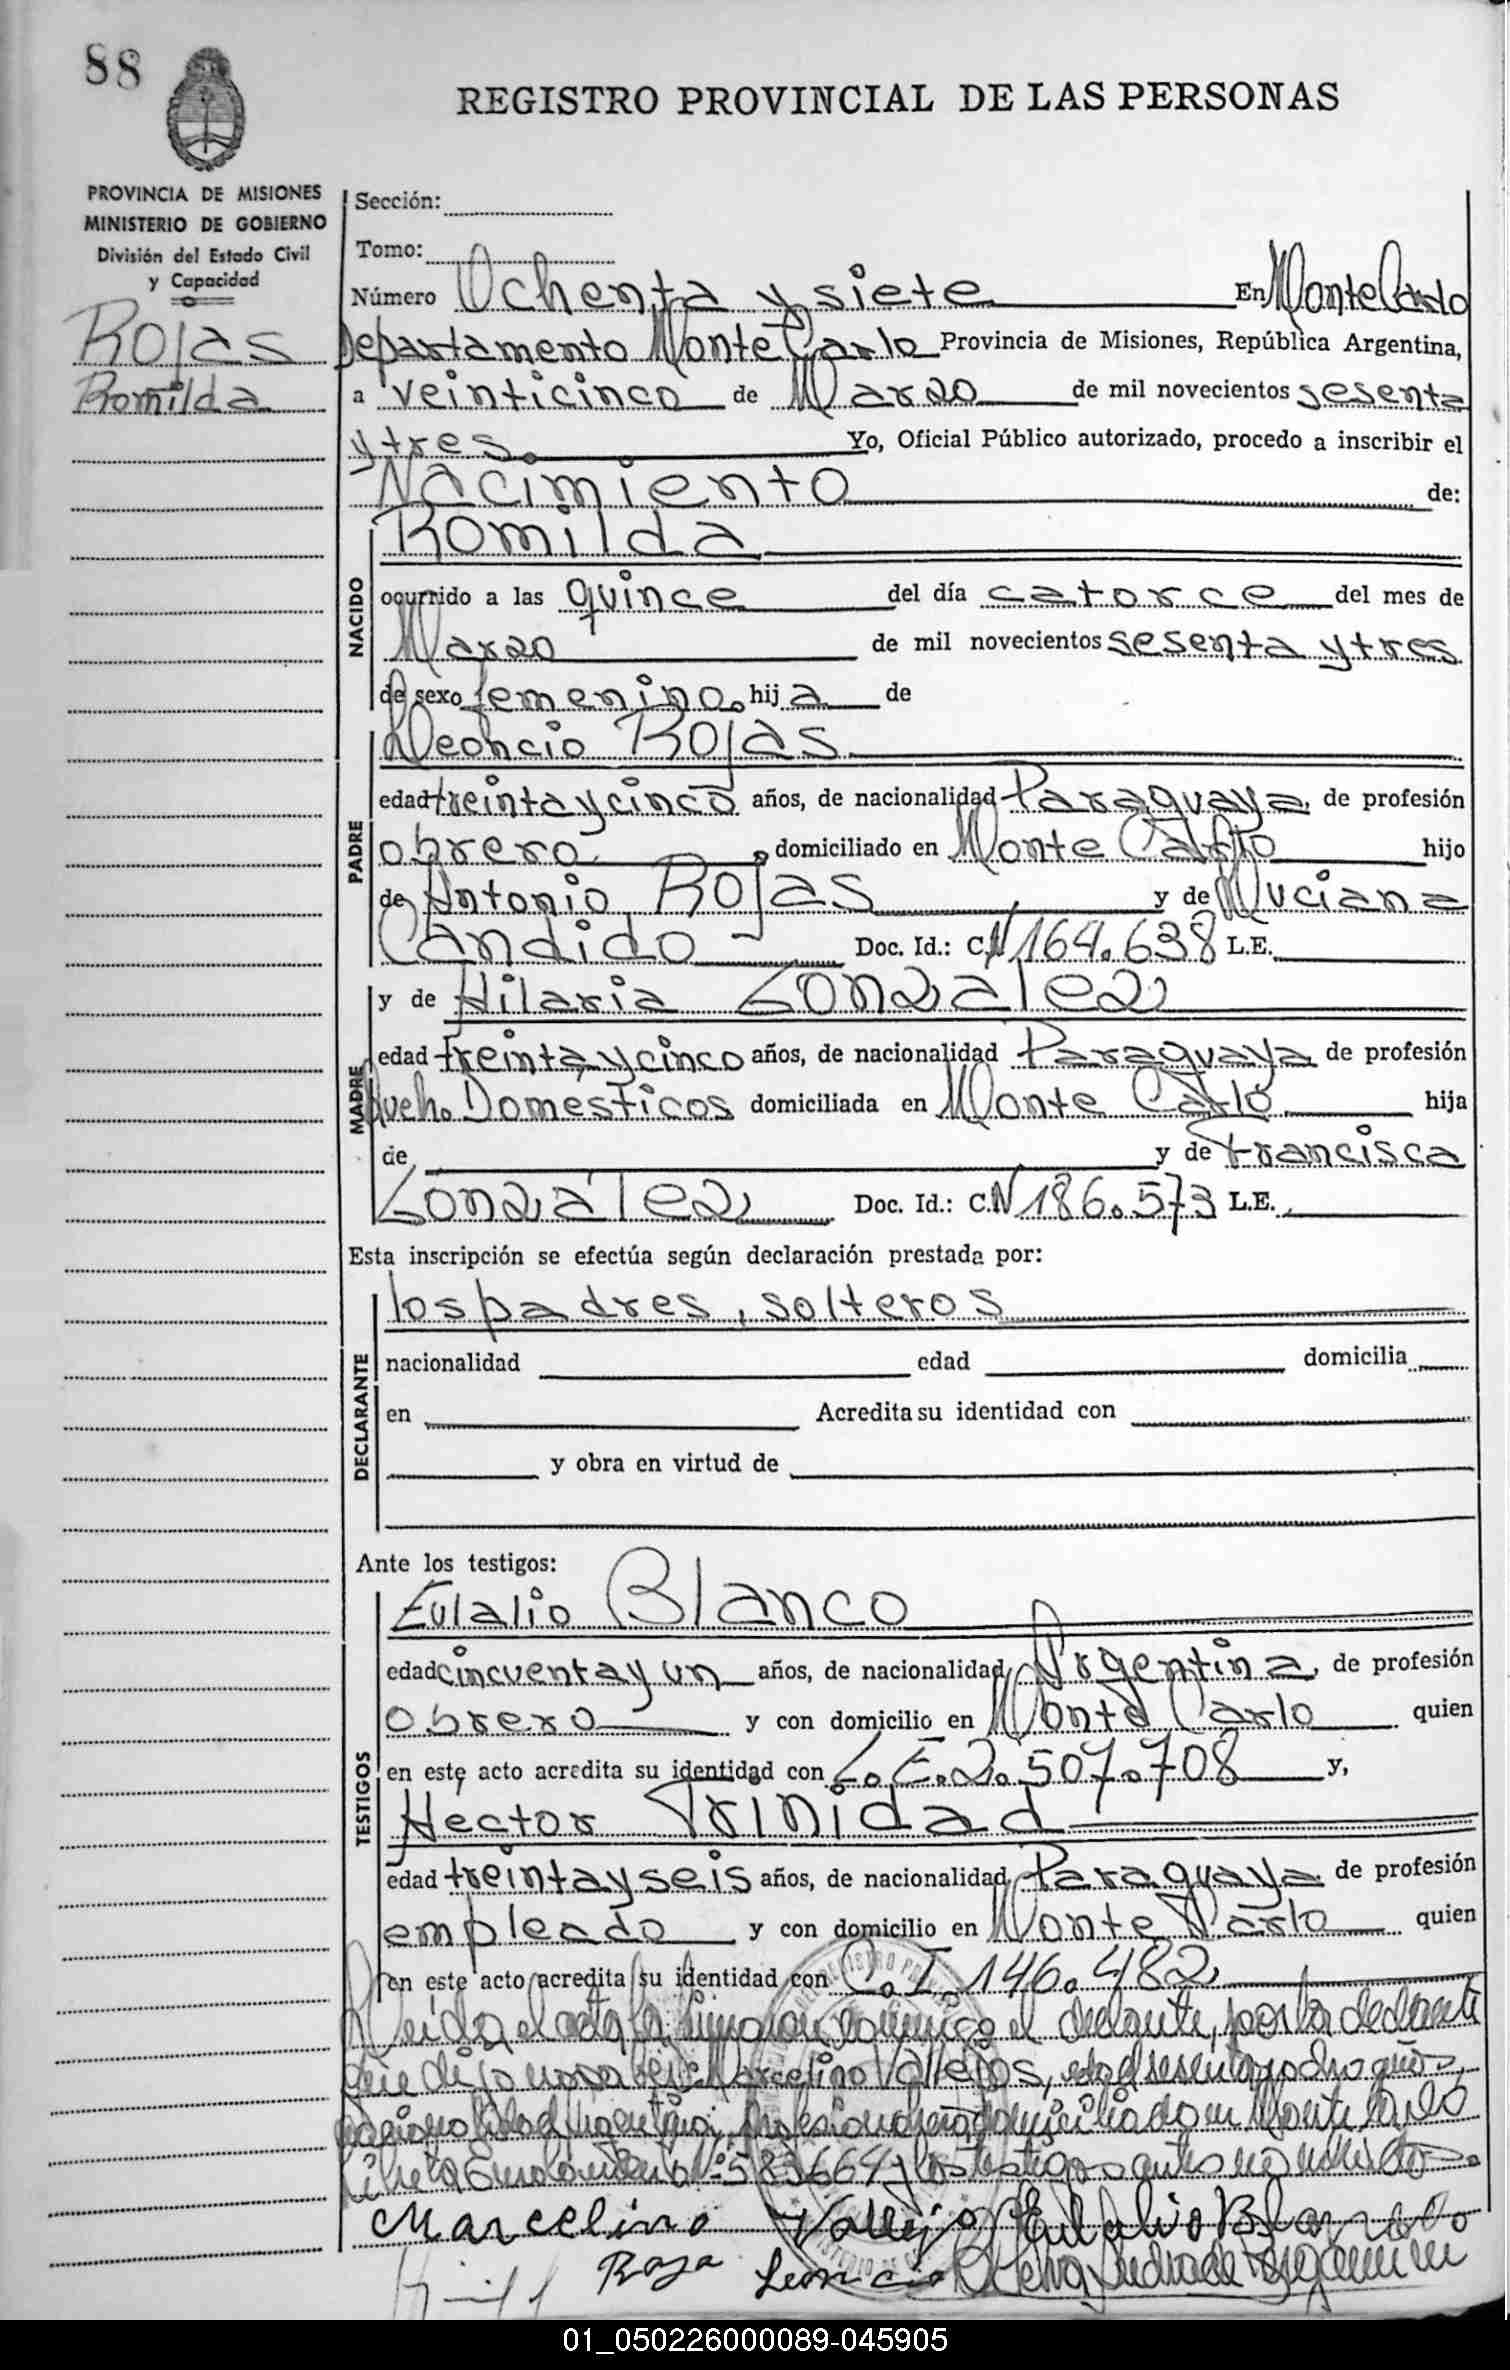 88
REGISTRO PROVINCIAL DE LAS PERSONAS
PROVINCIA DE MISIONES
MINISTERIO DE GOBIERNO
División del Estado Civil
y Capacidad
Rojas
Romilda
Sección:
Tomo:
Número Ochenta y siete En Monte Carlo
Departamento Monte Carlo Provincia de Misiones, República Argentina,
a veinticinco de Marzo de mil novecientos sesenta
y tres. Yo, Oficial Público autorizado, procedo a inscribir el
Nacimiento de:
Romilda
NACIDO
ocurrido a las quince del día catorce del mes de
Marzo de mil novecientos sesenta y tres
de sexo femenino, hij a de
Leoncio Rojas
PADRE
edad treinta y cinco años, de nacionalidad Paraguaya, de profesión
obrero, domiciliado en Monte Carlo hijo
de Antonio Rojas y de Muciana
Candido Doc. Id.: C. N 164.638 L.E.
MADRE
y de Hilaria Gonzalez
edad treinta y cinco años, de nacionalidad Paraguaya de profesión
Queh. Domesticos domiciliada en Monte Carlo hija
de y de Francisca
Gonzalez Doc. Id.: C. N 186.573 L.E.
Esta inscripción se efectúa según declaración prestada por:
los padres, solteros
DECLARANTE
nacionalidad edad domicilia
en Acredita su identidad con
y obra en virtud de
Ante los testigos:
TESTIGOS
Eulalio Blanco
edad cincuenta y un años, de nacionalidad Argentina, de profesión
obrero y con domicilio en Monte Carlo quien
en este acto acredita su identidad con L.E. 2.507.708 y,
Hector Trinidad
edad treinta y seis años, de nacionalidad Paraguaya de profesión
empleado y con domicilio en Monte Carlo quien
en este acto acredita su identidad con C.I. 146.482
Leida el acta la firmaron conmigo el por la
que dijo no saber Marcelino Vallejos, edad sesenta y ocho años,
nacionalidad Argentina, profesion domiciliado en Monte Carlo
Libreta Enrolamiento Nº 583664 y los testigos antes
Marcelino Vallejo Eulalio Blanco
Roja Leoncio
01_050226000089-045905